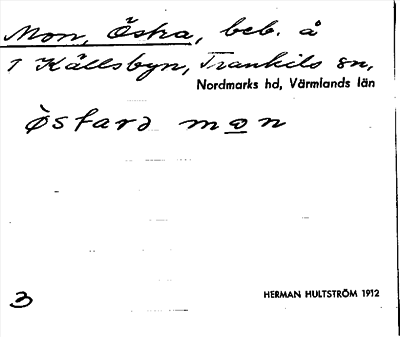 Mon, Östra, beb. å
1 Källsbyn, Trankils sn,
Nordmarks hd, Värmlands län
östard mon
3
HERMAN HULTSTRÖM 1912